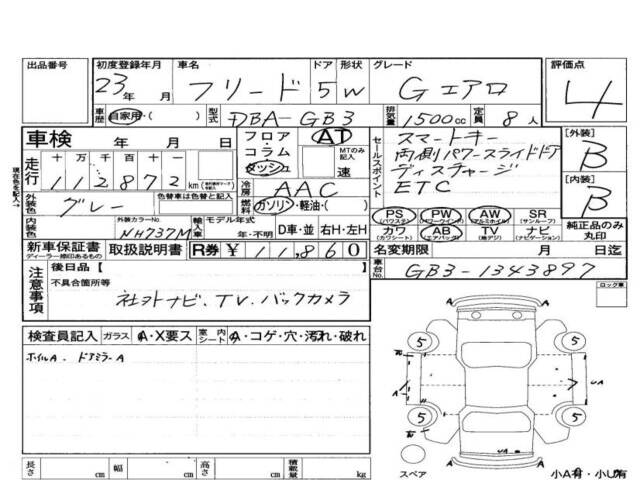 出品番号 初度登録年月 車名 ドア 形状 グレード 評価点
23年 月 フリード 5 W Gエアロ 4
車歴 自家用・( ) 型式 DBA-GB3 排気量 1500cc 定員 8人
車検 年 月 日 フロア・コラム・ダッシュ AT MTのみ記入 速
セールスポイント スマートキー
両側パワースライドドア
ディスチャージ
ETC
[外装] B
[内装] B
走行 十 万 千 百 十 一
112872km
現在色を記入→
外装色 グレー 色替車は色替と記入
冷房 AAC
燃料 ガソリン・軽油・( )
内装色 外装カラーNo. NH737M 輸入車 モデル年式 年・不明 D車・並 右H・左H
PS (パワステ) PW (パワーウインド) AW (アルミホイル) SR (サンルーフ)
カワ (カワシート) AB (エアバッグ) TV (地デジ) ナビ (ナビゲーション)
純正品のみ丸印
新車保証書 ディーラー捺印あるもの 取扱説明書 R券 ¥ 11,860 名変期限 月 日迄
注意事項 後日品【 】 車台No. GB3-1343897
不具合箇所等
社外ナビ、TV、バックカメラ
ロック車
検査員記入 ガラス A・X要ス 室内シート A・コゲ・穴・汚れ・破れ
ホイルA、ドアミラーA
A A
5 5
A A UA
5 5
A A
スペア
小A有・小U有
長さ cm 幅 cm 高さ cm 積載量 kg